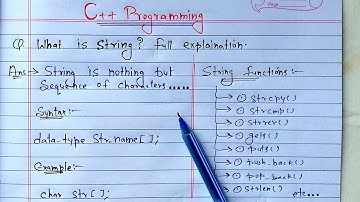 C++ Programming
Q. What is String? full explaination.
Ans→ String is nothing but
Sequence of characters.....
Syntax:-
data-type Str_name[];
Example:-
char str[];
String functions:-
→ ① Strcpy()
→ ① Strcmp()
→ ① Strrev()
→ ① gets()
→ ① puts()
→ ① push_back()
→ ① pop_back()
→ ① Strlen() etc...